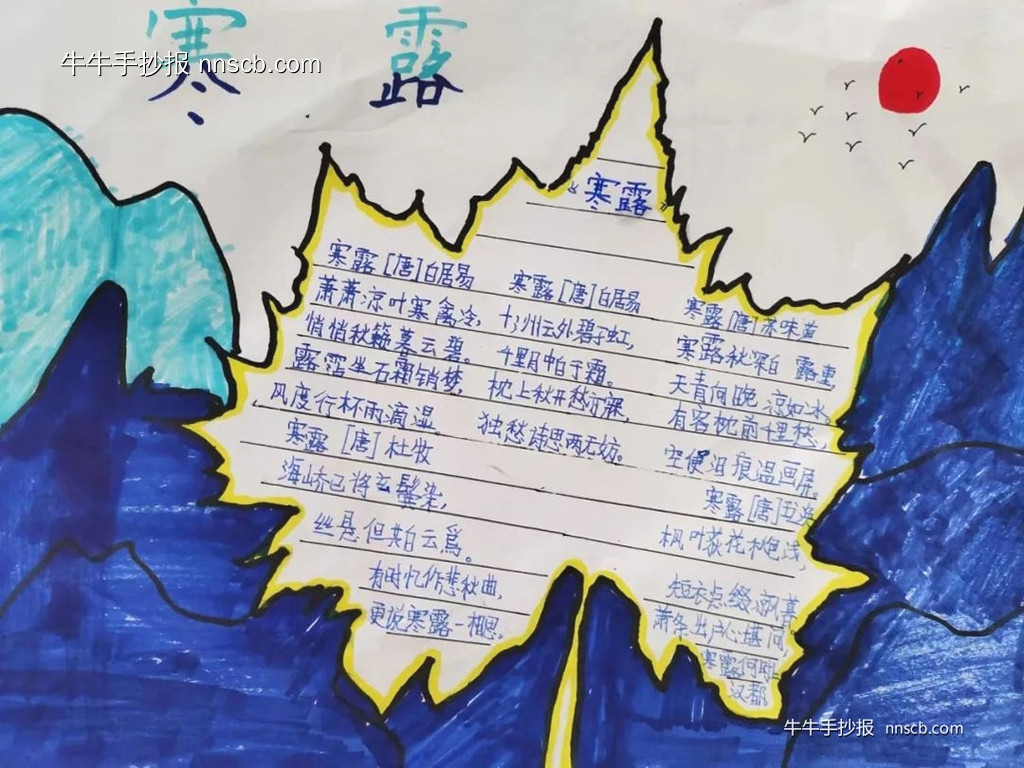 寒露
牛牛手抄报 nnscb.com
《寒露》
寒露[唐]白居易
萧萧凉叶寒禽冷,
悄悄秋簖暮云碧。
露窕坐石霜销梦,
风度行杯雨滴湿。
寒露[唐]杜牧
海峤已将玄鬓染,
丝悬但 白云
有时忆作悲秋曲,
更说寒露一相思。
寒露[唐]白居易
十州云外碧 虹,
千里月 千霜。
枕上秋 愁
独愁诗思两无妨。
寒露[唐]
寒露秋深白露重,
天青向晚凉如冰。
有客枕前千里愁,
空使泪痕温画屏。
寒露[唐]
枫叶荻花秋色浅,
短衣点缀
萧条出户心 间,
寒露何
汉都。
牛牛手抄报 nnscb.com